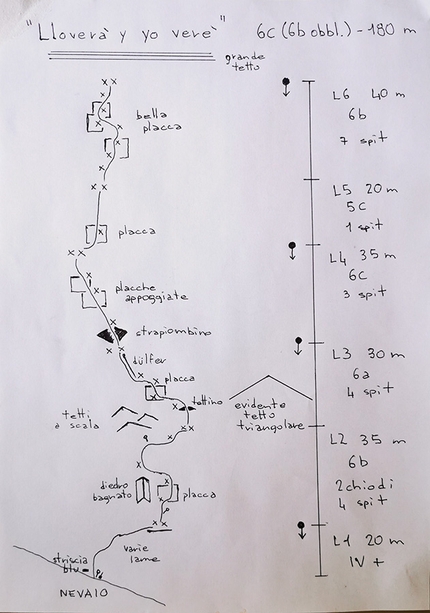 "Lloverà y yo verè" 6c (6b obbl.) - 180 m
grande
tetto
bella
placca
placca
placche
appoggiate
strapiombino
dülfer
placca
tettino
tetti
a scala
evidente
tetto
triangolare
diedro
bagnato
placca
varie
lame
striscia
blu
NEVAIO
L6 40 m
6b
7 spit
L5 20 m
5c
1 spit
L4 35 m
6c
3 spit
L3 30 m
6a
4 spit
L2 35 m
6b
2 chiodi
4 spit
L1 20 m
IV +